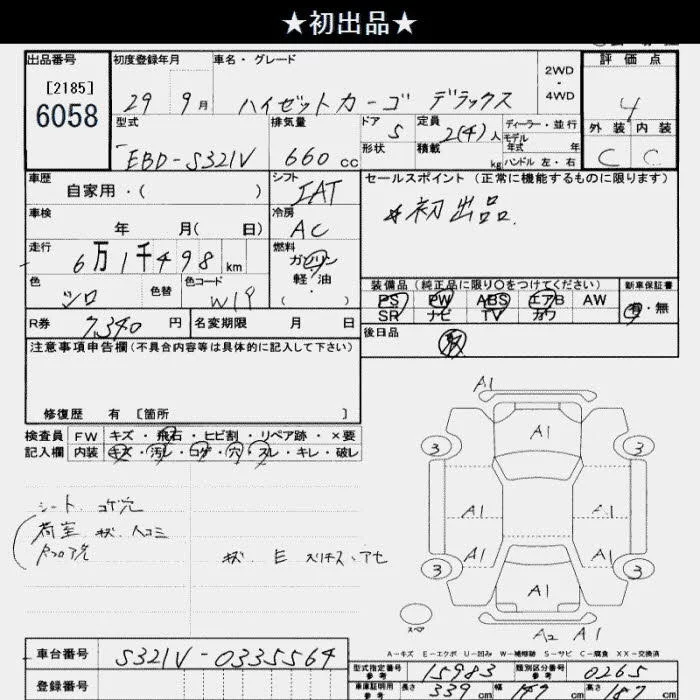 ★初出品★
出品番号 初度登録年月 車名・グレード 2WD・4WD 評価点
[2185]
6058
29 9月 ハイゼットカーゴ デラックス 4
型式 排気量 ドア 5 定員 2(4)人 ディーラー・並行 外装 内装
モデル年式 年
EBD-S321V 660cc 形状 積載 kg ハンドル 左・右 C C
車歴 シフト セールスポイント(正常に機能するものに限ります)
自家用・( ) IAT
車検 冷房 初出品.
年 月( 日) AC
走行 燃料
6万1千498km ガソリン
軽・油
( ・ )
色 色替 色コード
シロ W19
装備品(純正品に限り○をつけてください) 新車保証書
PS PW ABS エアB AW 有・無
SR ナビ TV カワ
R券 7,340円 名変期限 月 日 後日品
注意事項申告欄(不具合内容等は具体的に記入して下さい)
修復歴 有 [箇所 ]
検査員 FW キズ・飛石・ヒビ割・リペア跡・×要
記入欄 内装 キズ・汚レ・コゲ・穴・スレ・キレ・破レ
シート コゲ穴
荷室 キズ
A1
A1
3 3
A1 A1
A1 A1
3 3
A1
スペア
A2 A1
A-キズ E-エクボ U-凹み W-補修跡 S-サビ C-腐食 XX-交換済
車台番号 S321V-0335564
登録番号
型式指定番号 参考 15983 類別区分番号 参考 0265
車庫証明用 参考 長さ 339cm 幅 147cm 高さ 187cm